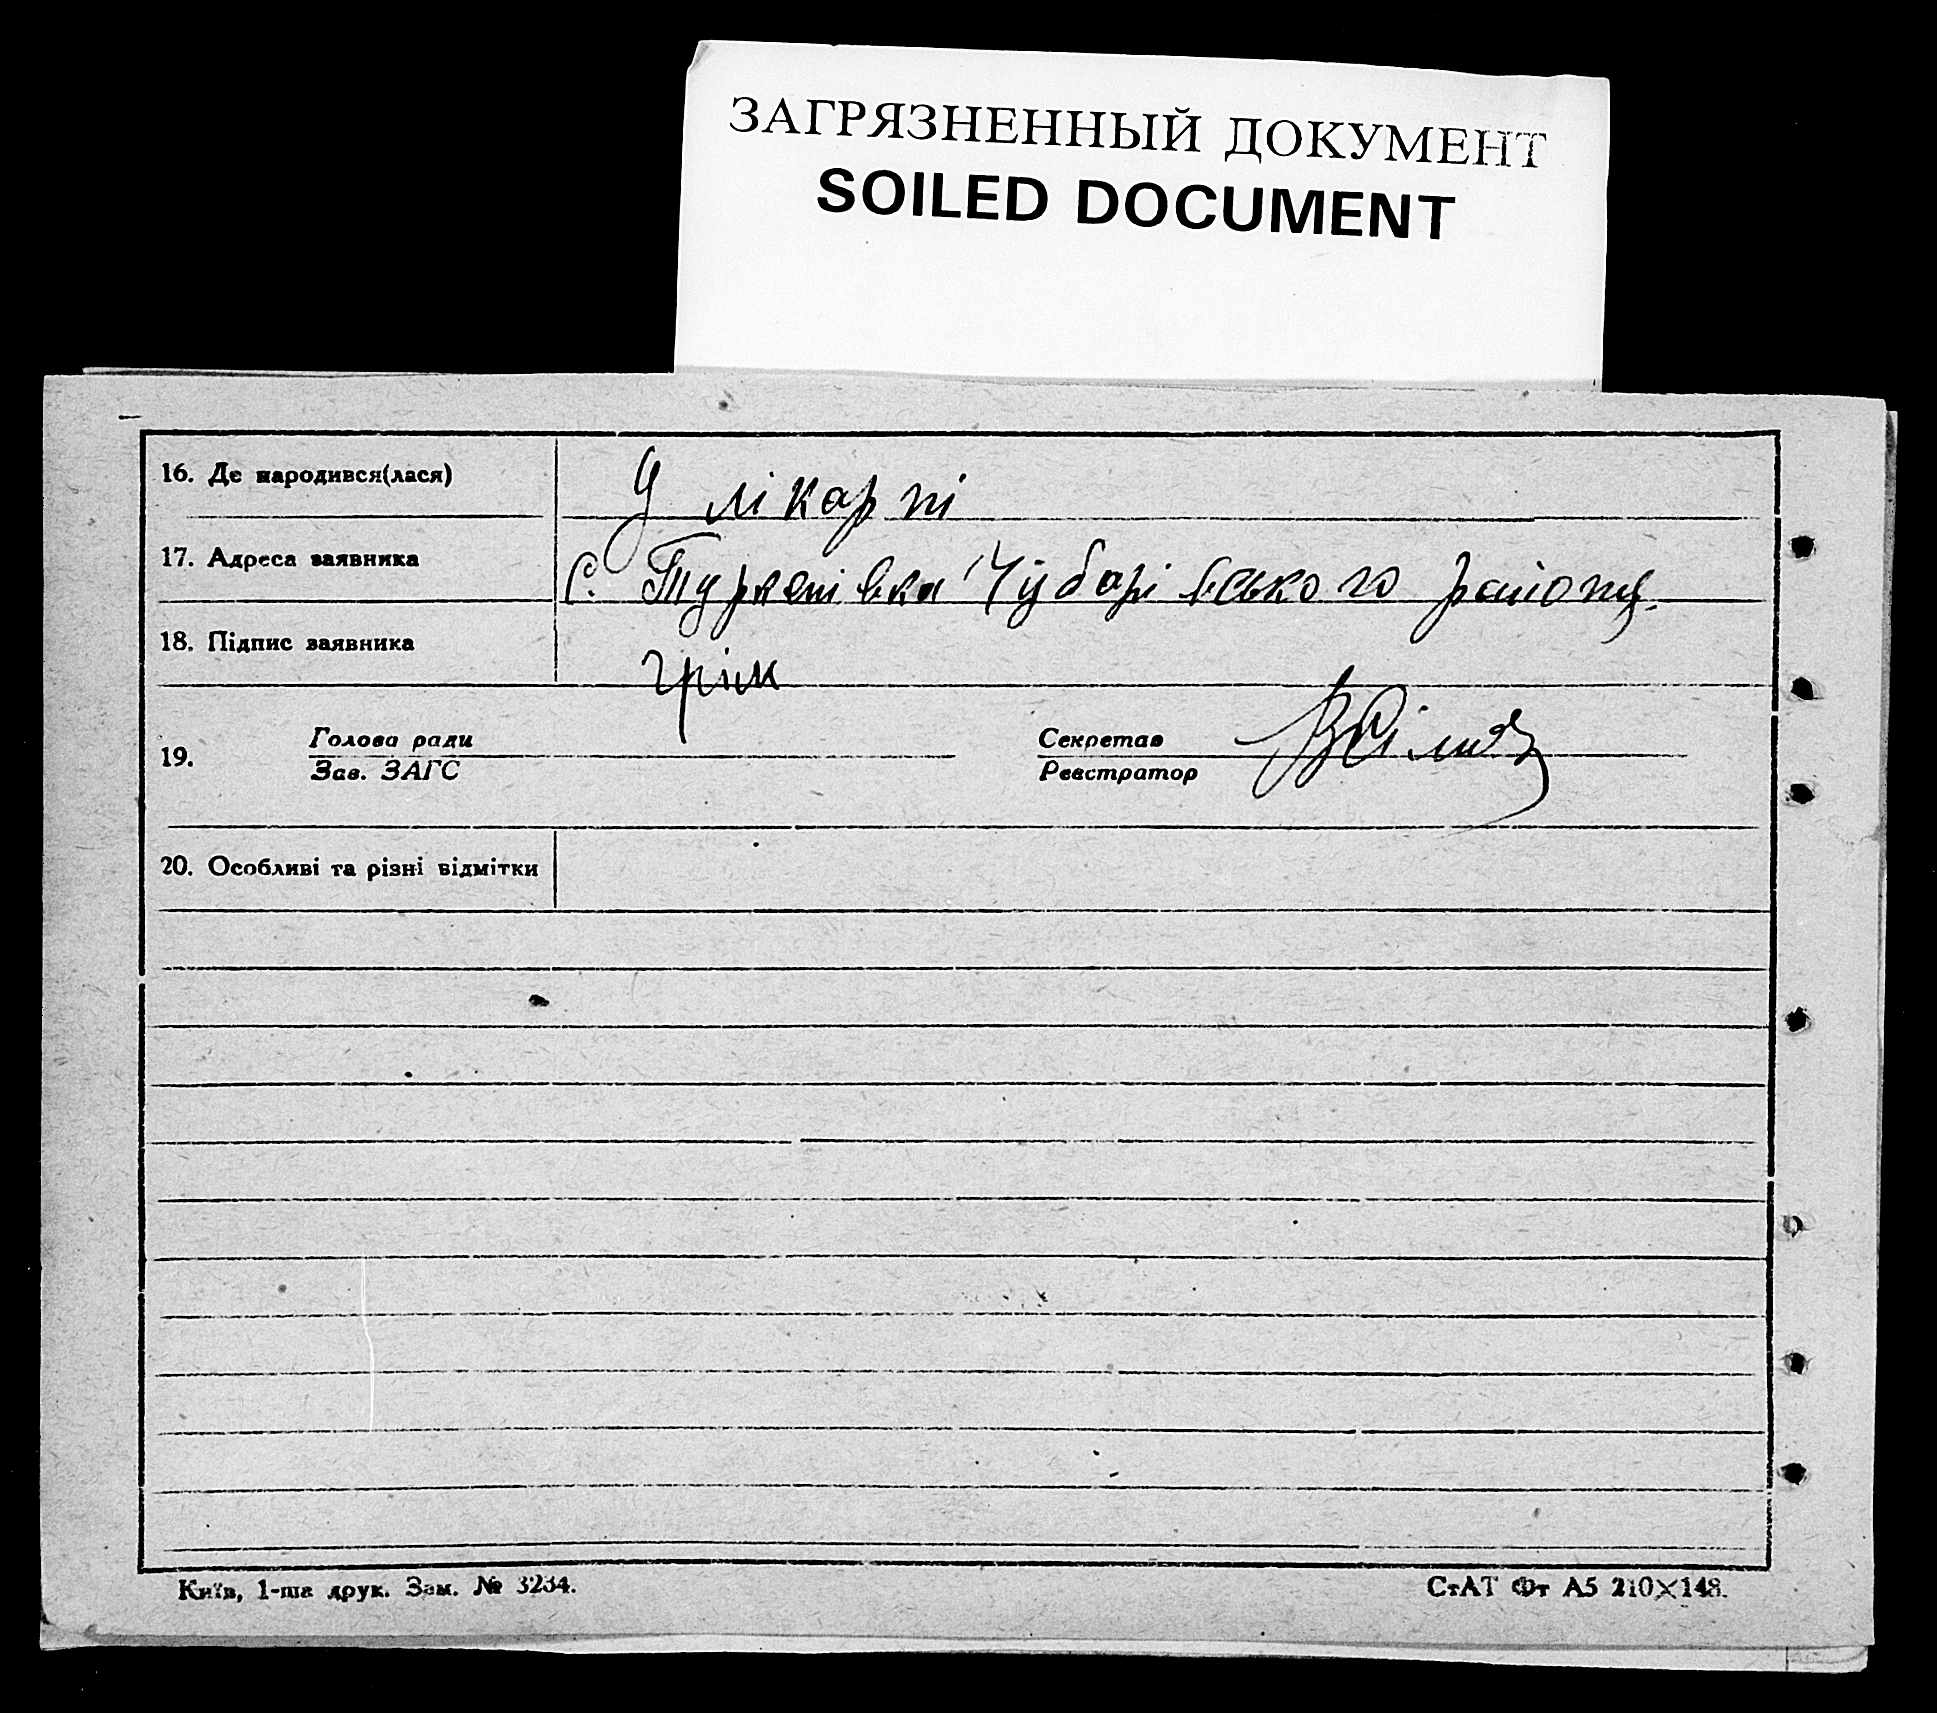 ЗАГРЯЗНЕННЫЙ ДОКУМЕНТ
SOILED DOCUMENT
16. Де народився(лася) У лікарні
17. Адреса заявника с. Туркенівка Чубарівського району.
18. Підпис заявника грім
19. Голова ради
Зав. ЗАГС
Секретар
Реєстратор
20. Особливі та різні відмітки
Київ, 1-ша друк. Зам. № 3234.
СтАТ Фт А5 210×148.